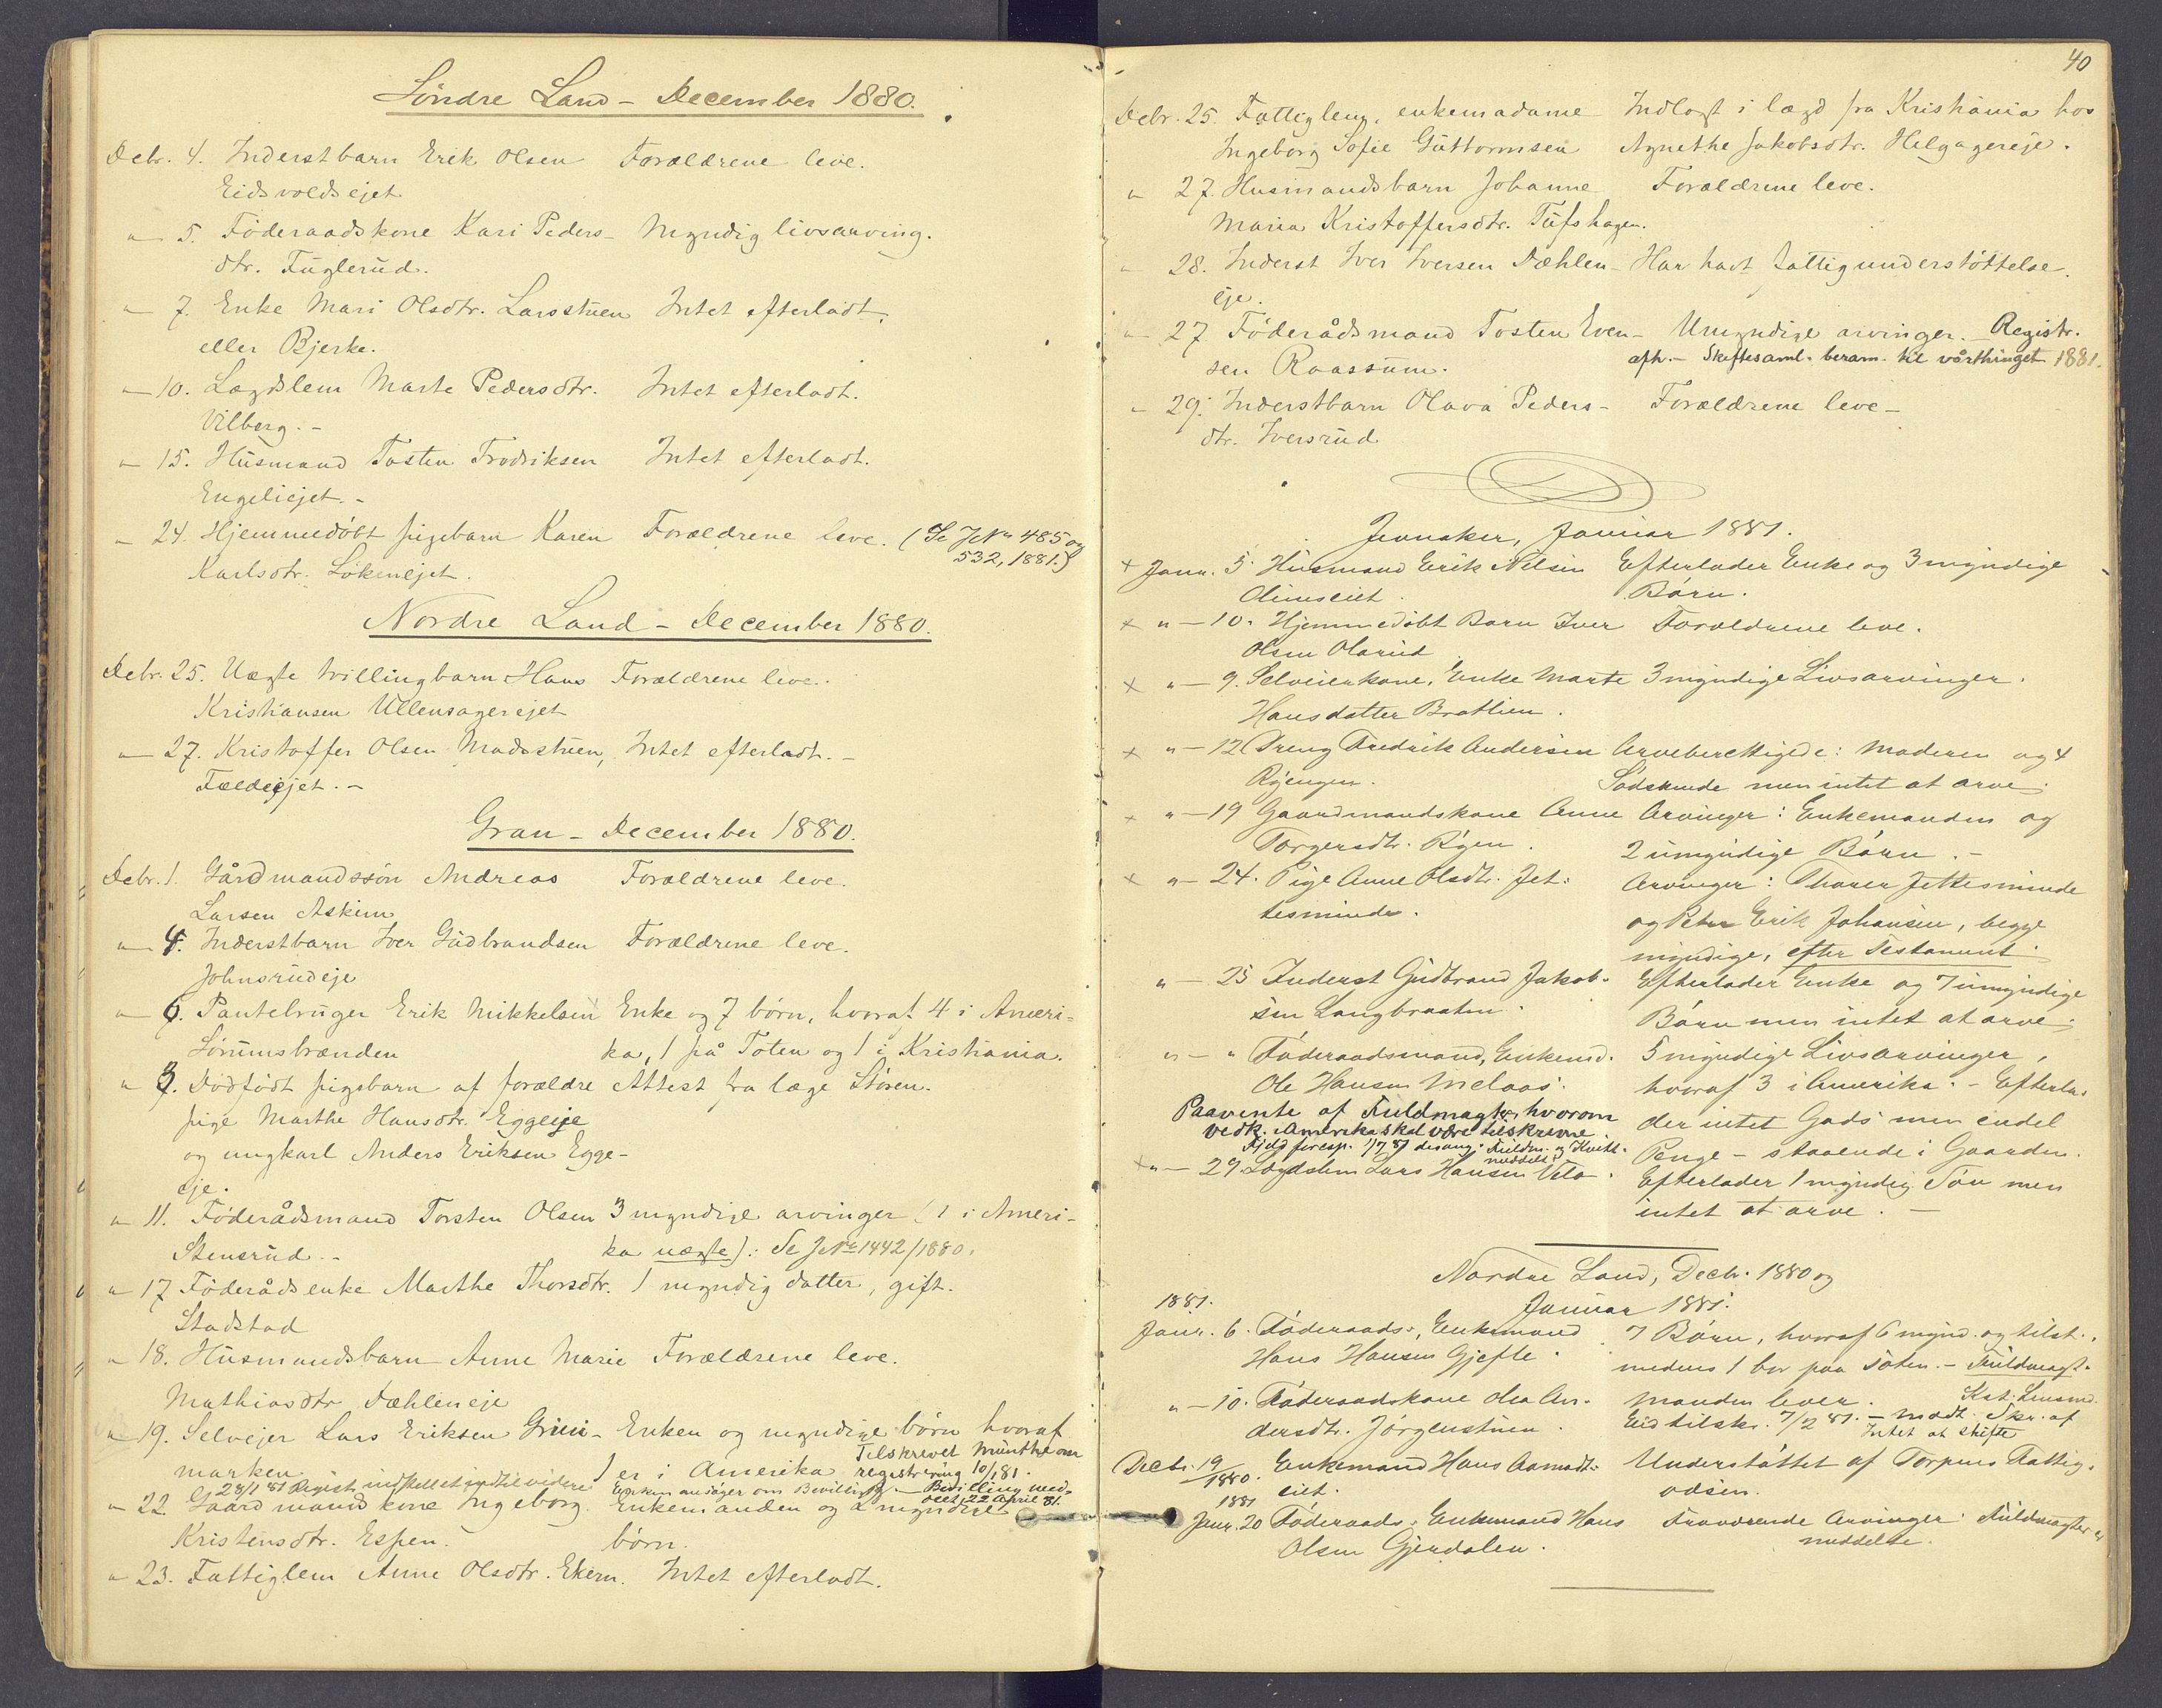 Söndre Land - December 1880.
Debr. 4. Inderstbarn Erik Olsen Forældrene leve.
Eidsvoldsejet
" 5. Föderaadskone Kari Peders- Myndig livsarving.
dtr. Fuglerud.
" 7. Enke Mari Olsdtr. Larsstuen Intet efterladt.
eller Bjerke.
" 10. Lægdslem Marte Pedersdtr. Intet efterladt.
Vilberg. -
" 15. Husmand Tosten Fredriksen Intet efterladt.
Engeliejet. -
" 24. Hjemmedöbt pigebarn Karen Forældrene leve. (Se J№ 485 og
532, 1881.)
Karlsdtr. Lökenejet.
Nordre Land - December 1880.
Debr. 25. Uægte tvillingbarn Hans Forældrene leve.
Kristiansen Ullensagerejet
" 27. Kristoffer Olsen Madsstuen, Intet efterladt. -
Fældeejet. -
Gran - December 1880.
Debr. 1. Gårdmandssön Andreas Forældrene leve.
Larsen Askim
" 4. Inderstbarn Iver Gudbrandsen Forældrene leve.
Johnsrudeje
" 6. Pantebruger Erik Mikkelsen Enke og 7 börn, hvoraf 4 i Ameri-
Sörumsbrænden ka, 1 på Toten og 1 i Kristiania.
" Dödfödt pigebarn af forældre Attest fra læge Stören.
pige Marthe Hansdtr. Eggeeje
og ungkarl Anders Eriksen Egge-
eje.
" 11. Föderådsmand Torsten Olsen 3 myndige arvinger (1 i Ameri-
Stensrud. - ka uægte): Se J№ 1442/1880.
" 17 Föderådsenke Marthe Thorsdtr. 1 myndig datter, gift.
Stadstad
" 18. Husmandsbarn Anne Marie Forældrene leve.
Mathiasdtr Dæhleneje
" 19. Selvejer Lars Eriksen Grini- Enken og myndige börn hvoraf
marken 1 er i Amerika Tilskrevet Munthe om
registrering 10/1 81.
28/1 81 Registr. indstillet indtil videre Enken andager om Bevilling - Bevilling med-
delt 22 April 81.
" 22. Gaardmandskone Ingeborg Enkemanden og 2 myndige
Kristensdtr. Espen. börn.
" 23. Fattiglem Anne Olsdtr. Ekern. Intet efterladt.
40
Debr. 25. Fattiglem, enkemadame Indlagt i lægd fra Kristiania hos
Ingeborg Sofie Guttormsen Agnethe Jakobsdtr. Helgagereje.
" 27. Husmandsbarn Johanne Forældrene leve.
Maria Kristoffersdtr. Tufshagen.
" 28. Inderst Iver Iversen Dæhlen- Har havt fattigunderstöttelse.
eje.
" 27. Föderådsmand Tosten Even- Umyndige arvinger. - Registr.
sen Raassum. afh. - Skiftesaml. beram. til vårthinget 1881.
" 29. Inderstbarn Olava Peders- Forældrene leve -
dtr. Iversrud
Jevnaker, Januar 1881.
x Janr. 5. Husmand Erik Nilsen Efterlader Enke og 3 myndige
Olimseiet. Börn.
x " - 10. Hjemmedöbt Barn Iver Forældrene leve.
Olsen Olarud
x " - 9. Selveierkone, Enke Marte 3 myndige Livsarvinger.
Hansdatter Bratlien.
x " - 12 Dreng Fredrik Andersen Arveberettigede: Moderen og 4
Röiengen. Södskende men intet at arve.
x " - 19 Gaardmandskone Anne Arvinger: Enkemanden og
Torgersdtr. Röen. 2 umyndige Börn. -
x " - 24. Pige Anne Olsdtr. Jet- Arvinger: Thorer Jettesminde
tesminde. og Peter Erik Johansen, begge
myndige, efter Testament.
" - 25 Inderst Gudbrand Jakob- Efterlader Enke og 7 umyndige
sen Langbraaten. Börn men intet at arve.
" - " Föderaadsmand, Enkemd. 5 myndige Livsarvinger,
Ole Hansen Melaas. hvoraf 3 i Amerika. - Efterla-
Paavente af Fuldmagter, hvorom der intet Gods men endel
vedk. i Amerika skal være tilskrevne Penge - staaende i Gaarden.
foresp. 1/7 81 desang. Fuldm. og Kvitt.
meddelt
x " - 29 Lægdslem Lars Hansen Velo. Efterlader 1 myndig Sön men
intet at arve. -
Nordre Land, Decbr. 1880 og
Januar 1881.
1881.
Janr. 6. Föderaads-, Enkemand 7 Börn, hvoraf 6 mynd. og tilst.,
Hans Hansen Gjefle. medens 1 bor paa Toten. - Fuldmagt.
" - 10. Föderaadskone Olea An- Manden lever. Kst. Lensmd.
dersdtr. Jörgenstuen. Eid tilskr. 7/2 81. - Modt. Skr. af
Intet at skifte
Decbr. 19/1880. Enkemand Hans Aamodt- Understöttet af Torpens Fattig-
eiet. væsen.
1881
Janr. 20 Föderaads-, Enkemand Hans Fraværende Arvinger. Fuldmagter
Olsen Gjerdalen. meddelte.